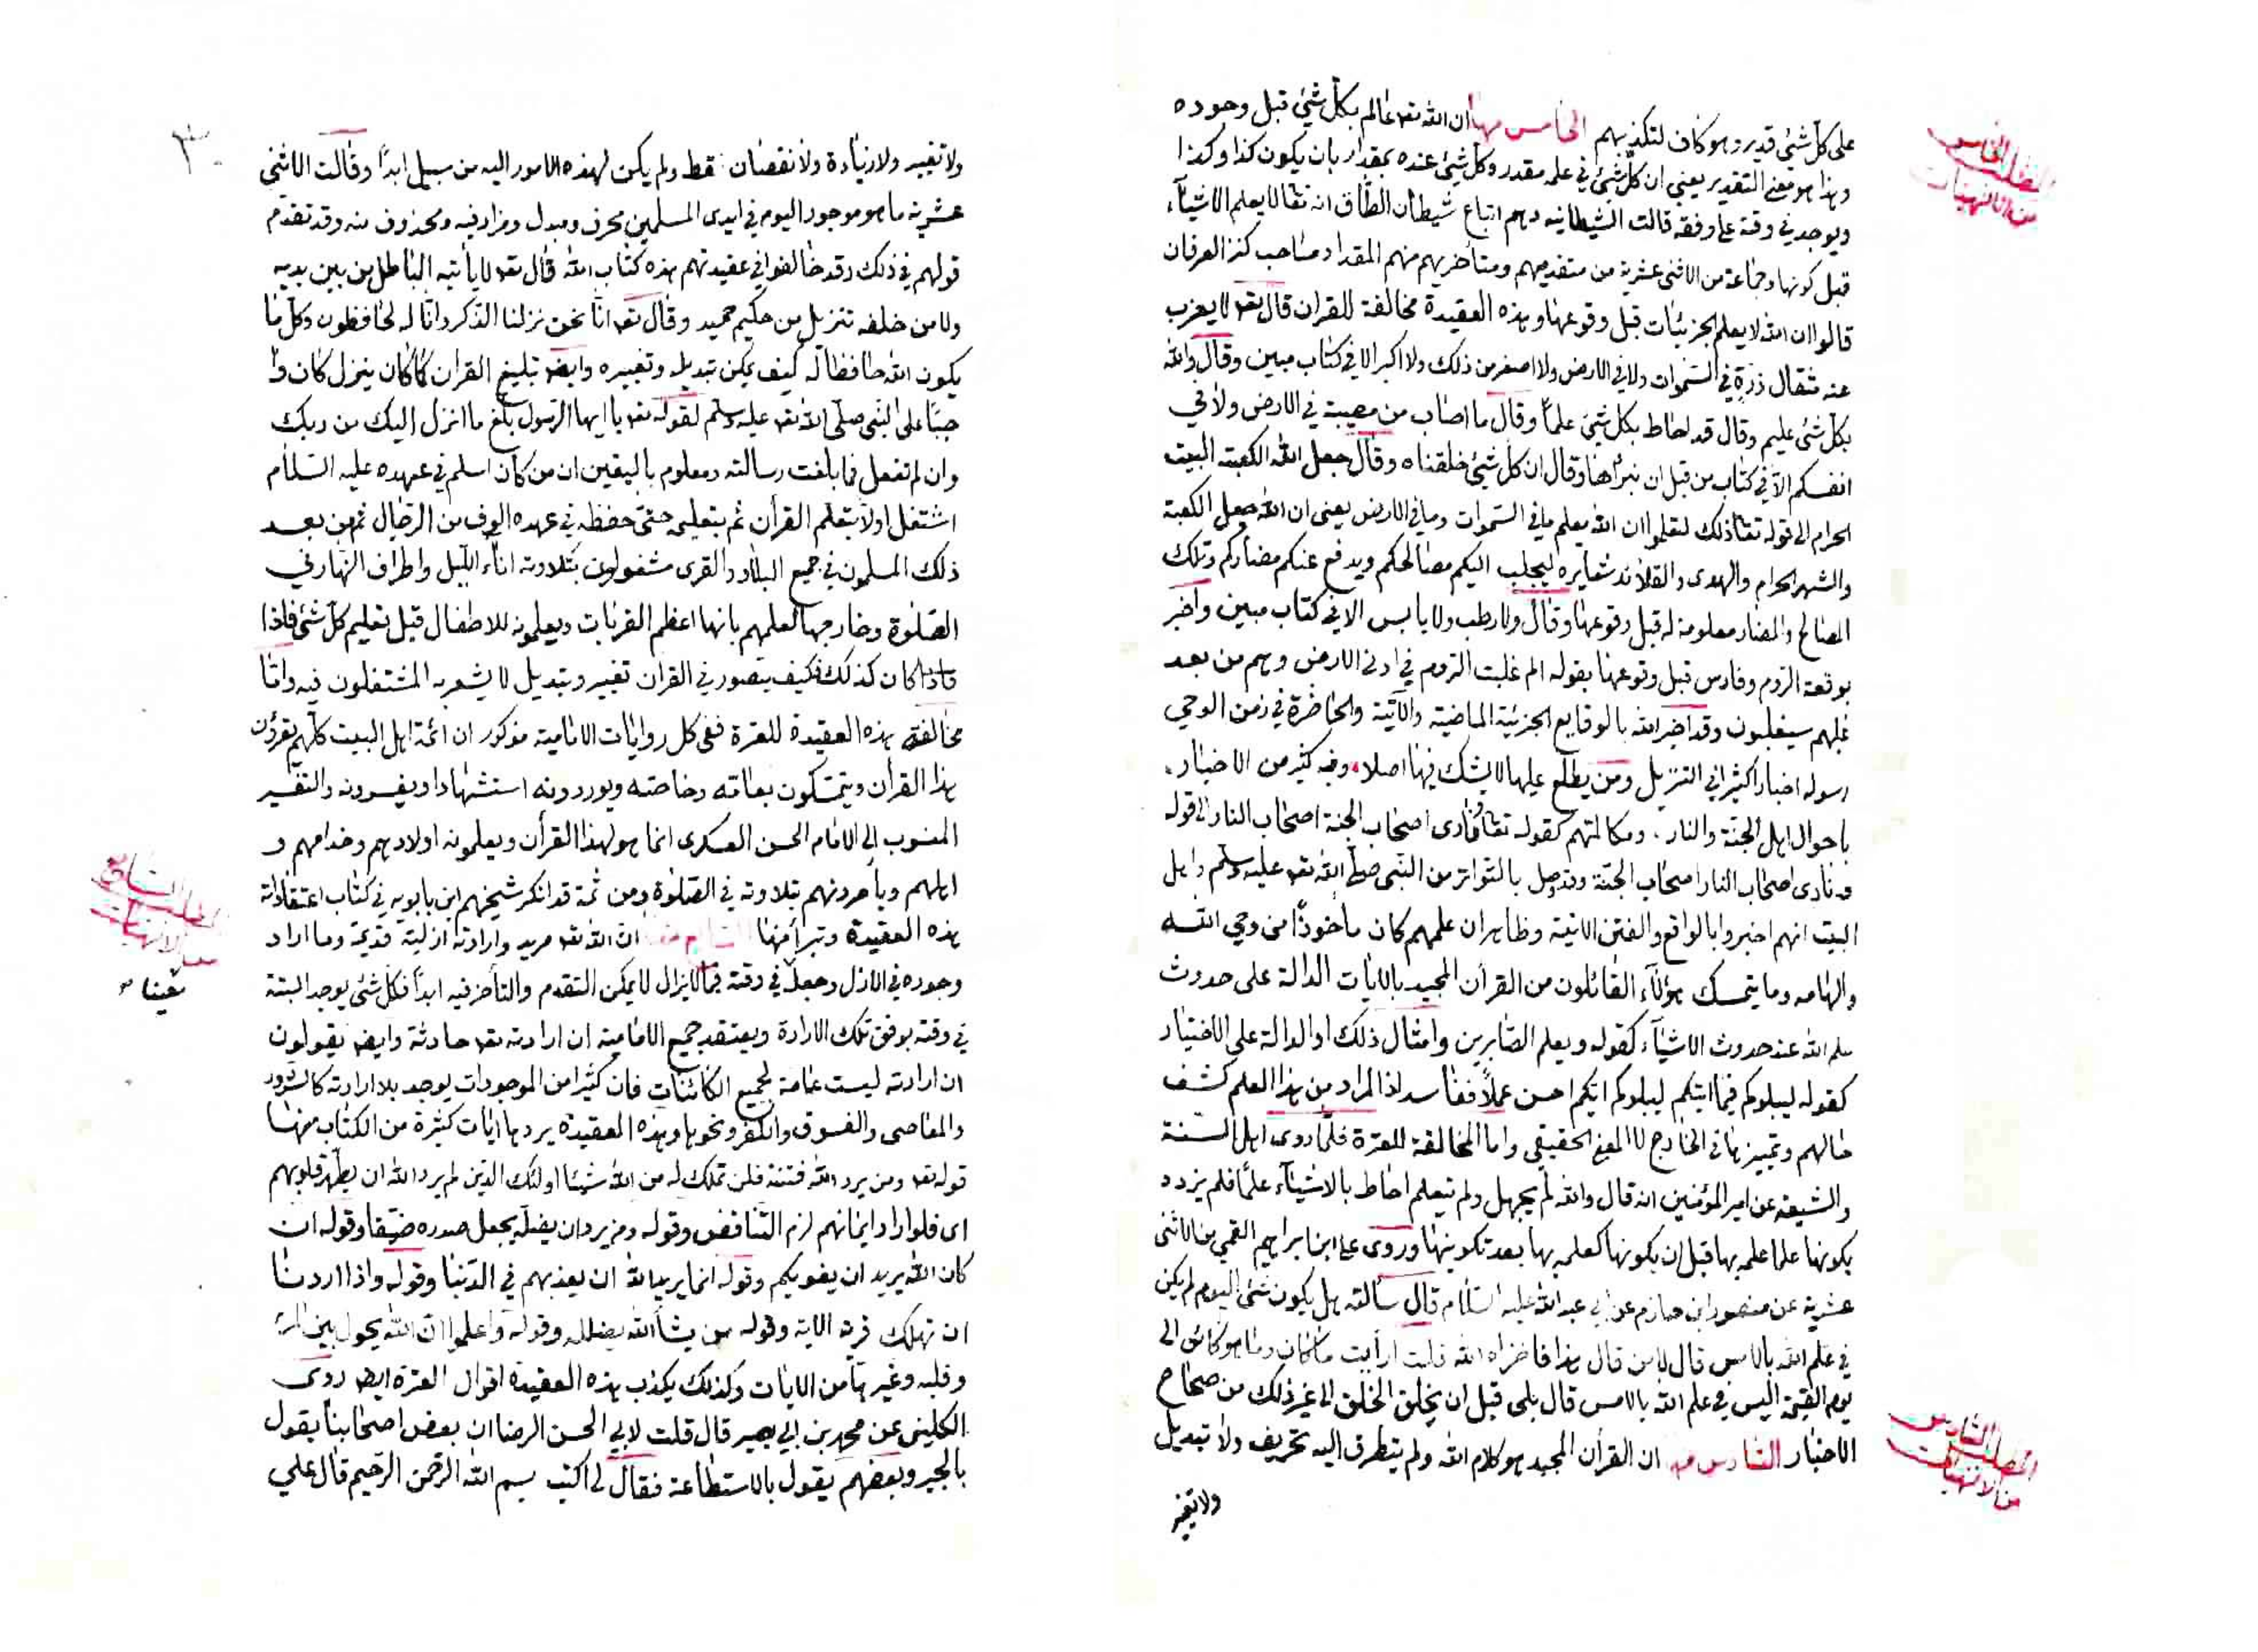 على كل شئ قدير وهو كاف لتكذيبهم الخامس منها ان الله تعـ عالم بكل شئ قبل وجوده
وهذا هو معنى التقدير يعني ان كل شئ في علمه مقدر وكل شئ عنده بمقدار بان يكون كذا وكذا
ويوجد في وقته على وفقه قالت الشيطانيه وهم اتباع شيطان الطاق انه تعالى لا يعلم الاشيآء
قبل كونها وجماعة من الاثنى عشرية من متقدميهم ومتأخريهم منهم المقداد صاحب كنز العرفان
قالوا ان الله لا يعلم الجزئيات قبل وقوعها وهذه العقيدة مخالفة للقران قال تعـ لا يعزب
عنه مثقال ذرة في السموات ولا في الارض ولا اصغر من ذلك ولا اكبر الا في كتاب مبين وقال والله
بكل شئ عليم وقال قد احاط بكل شئ علما وقال ما اصاب من مصيبة في الارض ولا في
انفسكم الا في كتاب من قبل ان نبرأها وقال ان كل شئ خلقناه وقال جعل الله الكعبة البيت
الحرام الى قوله تعـ ذلك لتعلموا ان الله يعلم ما في السموات وما في الارض يعنى ان الله جعل الكعبة
والشهر الحرام والهدى والقلائد شعايره ليجلب اليكم مصالحكم ويدفع عنكم مضاركم وتلك
المصالح والمضار معلومة له قبل وقوعها وقال ولا رطب ولا يابس الا في كتاب مبين واخبر
بوقعة الروم وفارس قبل وقوعها بقوله الم غلبت الروم في ادنى الارض وهم من بعد
غلبهم سيغلبون وقد اخبر الله بالوقايع الجزئية الماضية والآتية والحاضرة في زمن الوحي
رسوله اخبارا كثيرا في التنزيل ومن يطلع عليها لا يشك فيها اصلا وفيه كثير من الاخبار
باحوال اهل الجنة والنار ومكالمتهم كقوله تعـ فنادى اصحاب الجنة اصحاب النار الى قوله
ونادى اصحاب النار اصحاب الجنة وقد وصل بالتواتر من النبى صلى الله تعـ عليه وسلم واهل
البيت انهم اخبروا بالواقع والفتن الاتية وظاهر ان علمهم كان مأخوذا من وحي الله
والهامه وما يتمسك هؤلآء القائلون من القرأن المجيد بالايات الدالة على حدوث
علم الله عند حدوث الاشيآء كقوله ويعلم الصابرين وامثال ذلك او الدالة على الاختيار
كقوله ليبلوكم فيما اتيكم ليبلوكم ايكم احسن عملا ففاسد اذ المراد من هذا العلم كشف
حالهم وتمييزها في الخارج لا المعنى الحقيقي واما المخالفة للعترة فلما روى اهل السنة
والشيعة عن امير المؤمنين انه قال والله لم يجهل ولم يتعلم احاط بالاشيآء علما فلم يزدد
بكونها علما علمه بها قبل ان يكونها كعلمه بها بعد تكوينها وروى على ابن ابراهيم القمي من الاثنى
عشرية عن منصور ابن حازم عن ابي عبد الله عليه السلام قال سألته هل يكون شئ اليوم لم يكن
في علم الله بالامس قال لا من قال هذا فاخزاه الله قلت ارأيت ما كان وما هو كائن الى
يوم القيمة اليس في علم الله بالامس قال بلى قبل ان يخلق الخلق الى غير ذلك من صحاح
الاخبار السادس منها ان القرأن المجيد هو كلام الله ولم يتطرق اليه تحريف ولا تبديل
ولا تغيير
المطلب الخامس
من الالهيات
المطلب السادس
من الالهيات
ولا تغيير ولا زيادة ولا نقصان قط ولم يكن لهذه الامور اليه من سبيل ابدا وقالت الاثنى
عشرية ما هو موجود اليوم في ايدى المسلمين محرف ومبدل ومزاد فيه ومحذوف منه وقد تقدم
قولهم في ذلك وقد خالفوا في عقيدتهم هذه كتاب الله قال تعـ لا يأتيه الباطل من بين يديه
ولا من خلفه تنزيل من حكيم حميد وقال تعـ انا نحن نزلنا الذكر وانا له لحافظون وكل ما
يكون الله حافظا له كيف يمكن تبديله وتغييره وايضـ تبليغ القران كما كان ينزل كان وا
جبا على النبى صلى الله تعـ عليه وسلم لقوله تعـ يا ايها الرسول بلغ ما انزل اليك من ربك
وان لم تفعل فما بلغت رسالته ومعلوم باليقين ان من كان اسلم في عهده عليه السلام
اشتغل اولا بتعلم القرأن ثم بتعليمه حتى حفظه في عهده الوف من الرجال ثم من بعد
ذلك المسلمون في جميع البلاد والقرى مشغولون بتلاوته انآء الليل واطراف النهار في
الصلوة وخارجها لعلمهم بانها اعظم القربات ويعلمونه للاطفال قبل تعليم كل شئ فاذا
فاذا كان كذلك فكيف يتصور في القران تغيير وتبديل لا يشعر به المشتغلون فيه واما
مخالفة هذه العقيدة للعترة ففى كل روايات الامامية مذكور ان ائمة اهل البيت كلهم يقرؤن
هذا القرأن ويتمسكون بعامه وخاصه ويوردونه استشهادا ويفسرونه والتفسير
المنسوب الى الامام الحسن العسكرى انما هو لهذا القرأن ويعلمونه اولادهم وخدامهم و
اهلهم ويأمرونهم بتلاوته في الصلوة ومن ثمة قد انكر شيخهم ابن بابويه في كتاب اعتقاداته
هذه العقيدة وتبرأ منها السابع منها ان الله تعـ مريد وارادته ازلية قديمة وما اراد
وجوده في الازل وجعله في وقته فيما لا يزال لا يمكن التقدم والتأخر فيه ابدا فكل شئ يوجد البتة
في وقته بوفق تلك الارادة ويعتقد جميع الامامية ان ارادته تعـ حادثة وايضـ يقولون
ان ارادته ليست عامة لجميع الكائنات فان كثيرا من الموجودات يوجد بلا ارادته كالشرور
والمعاصى والفسوق والكفر ونحوها وهذه العقيدة يردها ايات كثيرة من الكتاب منها
قوله تعـ ومن يرد الله فتنته فلن تملك له من الله شيئا اولئك الذين لم يرد الله ان يطهر قلوبهم
اى فلو اراد ايمانهم لزم التناقض وقوله ومن يرد ان يضله يجعل صدره ضيقا وقوله ان
كان الله يريد ان يغويكم وقوله انما يريد الله ان يعذبهم في الدنيا وقوله واذا اردنا
ان نهلك قرية الاية وقوله من يشأ الله يضلله وقوله واعلموا ان الله يحول بين المرء
وقلبه وغيرها من الايات وكذلك يكذب هذه العقيدة اقوال العترة ايضـ روى
الكلينى عن محمد بن ابي بصير قال قلت لابي الحسن الرضا ان بعض اصحابنا يقول
بالجبر وبعضهم يقول بالاستطاعة فقال لي اكتب بسم الله الرحمن الرحيم قال علي
المطلب السابع
من الالهيات